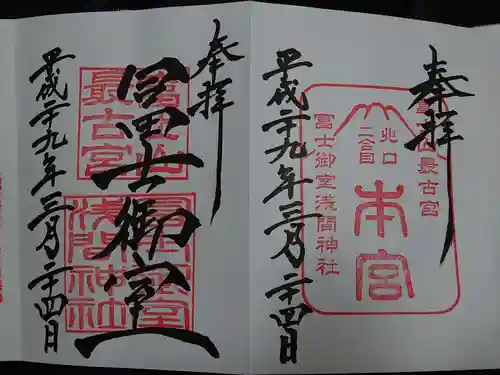 奉拝
本宮
北口
二合目
冨士御室浅間神社
平成二十九年三月二十四日
奉拝
冨士御室
最古宮
浅間神社
平成二十九年三月二十四日